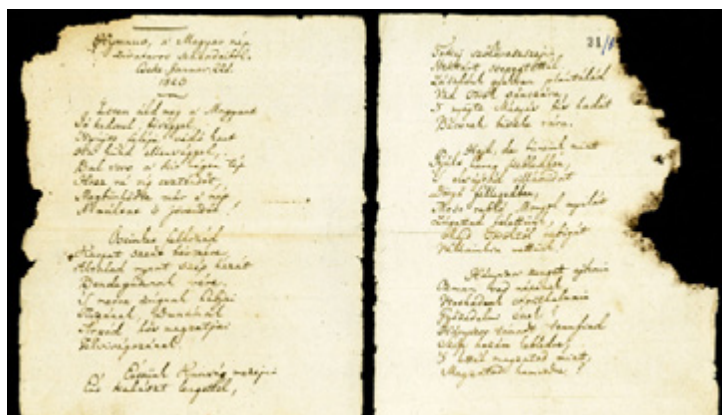 Hymnus, a' Magyar nép
zivataros századaiból.
Cseke, Januar. 22d.
1823
Isten áldd meg a' Magyart
Jó kedvvel, bőséggel,
Nyújts feléje védő kart
Ha küzd ellenséggel;
Bal sors a' kit régen tép
Hozz rá víg esztendőt,
Megbünhödte már e' nép
A' multat 's jövendőt!
Őseinket felhozád
Kárpát szent bérczére,
Által nyert szép hazát
Bendegúznak vére,
'S merre zúgnak habjai
Tiszának, Dunának
Árpád hős magzatjai
Felvirágozának.
Értünk Kunság mezejin
Ért kalászt lengettél,
31/
Tokaj szőlővesszein
Nektárt csepegtettél.
Zászlónk gyakran plántálád
Vad Török sánczára,
'S nyögte Mátyás bús hadát
Bécsnek büszke vára.
Hajh, de bűneink miatt
Gyúlt harag kebledben,
'S elsújtád villámidat
Dörgő fellegedben,
Most rabló Mongol nyilát
Zúgattad felettünk,
Majd Töröktől rabigát
Vállainkra vettünk.
Hányszor zengett ajkain
Ozman vad népének
Vert hadunk csonthalmain
Győzedelmi ének!
Hányszor támadt tenfiad
Szép hazám kebledre,
'S lettél magzatod miatt
Magzatod hamvvedre!